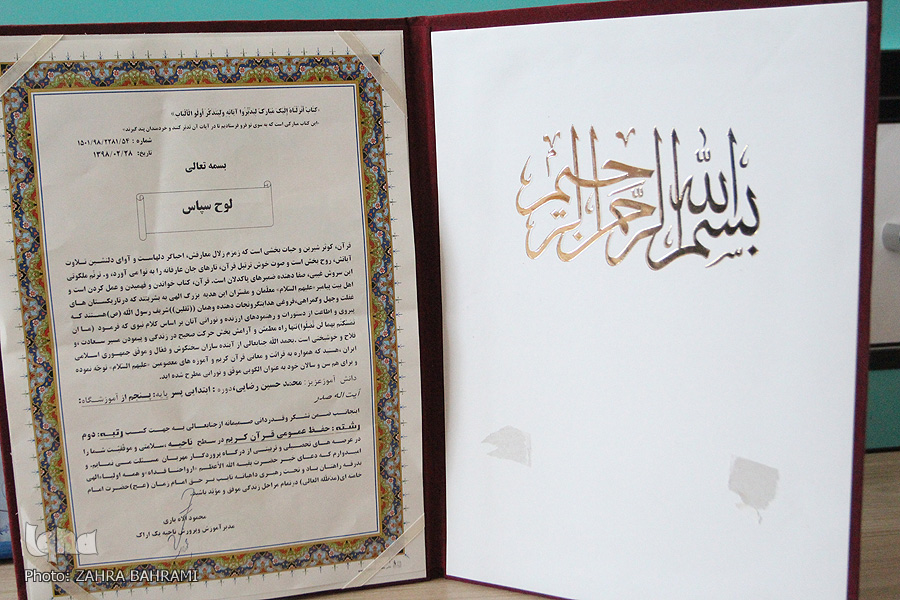 «کتابٌ اَنزَلناهُ اِلَیکَ مُبارَکٌ لِیَدَّبَّروا آیاتِه وَلِیَتَذَکَّرَ اُولُوا الاَلباب»
«این کتاب مبارکی است که به سوی تو فرو فرستادیم تا در آیات آن تدبر کنند و خردمندان پند گیرند»
شماره : ۱۵۰۱/۹۸/۲۲۸۱/۵۴
تاریخ: ۱۳۹۸/۰۲/۲۸
بسمه تعالی
لوح سپاس
قرآن، کوثر شیرین و حیات بخشی است که زمزم زلال معارفش، احیاگر دلهاست و آوای دلنشین تلاوت
آیاتش، روح بخش است و صوت خوش ترتیل قرآن، تارهای جان عارفانه را به نوا می آورد، و، ترنّم ملکوتی
این سروش غیبی، صفا دهنده ضمیرهای پاکدلان است. قرآن، کتاب خواندن و فهمیدن و عمل کردن است و
اهل بیت پیامبر«علیهم السلام» معلمان و مفسّران این هدیه بزرگ الهی به بشریتند که درتاریکستان های
غفلت وجهل وگمراهی،فروغی هدایتگرونجات دهنده وهمان ((ثقلین))شریف رسول الله (ص)هستند که
پیروی و اطاعت از دستورات و رهنمودهای ارزنده و نورانی آنان بر اساس کلام نبوی که فرمود (ما ان
تمسکتم بهما لن تضلوا)تنها راه مطمئن و آرامش بخش حرکت صحیح در زندگی و پیمودن مسیر سعادت ،و
فلاح و خوشبختی است .بحمد الله جنابعالی از آینده سازان سختکوش و فعال و موفق جمهوری اسلامی
ایران ،هستید که همواره به قرائت و معانی قرآن کریم و آموزه های معصومین «علیهم السلام» توجه نموده
و برای هم سن و سالان خود به عنوان الگویی موفق و نورانی مطرح شده اید.
دانش آموزعزیز: محمد حسین رضایی،دوره : ابتدایی پسر پایه: پنجم از آموزشگاه:
آیت اله صدر
اینجانب ضمن تشکر وقدردانی صمیمانه ازجنابعالی به جهت کسب رتبه: دوم
رشته : حفظ عمومی قرآن کریم در سطح ناحیه ،سلامتی و موفقیت شما را
در عرصه های تحصیلی و تربیتی از درگاه پروردگار مهربان مسئلت می نمایم، و
امیدوارم که دعای خیر حضرت بقیه الله الأعظم «ارواحنا فداه»و همه اولیاءالهی
بدرقه راهتان باد و تحت رهبری داهیانه نایب بر حق امام زمان (عج)حضرت امام
خامنه ای(مدظله العالی) درتمام مراحل زندگی موفق و مؤید باشید.
محمود اله یاری
مدیرآموزش وپرورش ناحیه یک اراک
بسم الله الرحمن الرحیم
iqna
Photo: ZAHRA BAHRAMI